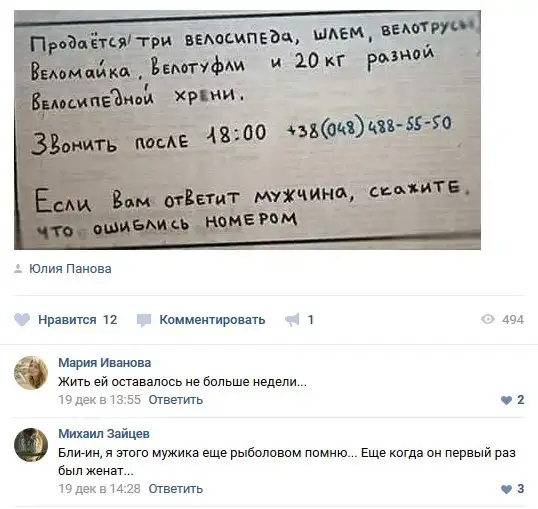 Продаётся/ три велосипеда, шлем, велотрусы
Веломайка, Велотуфли и 20 кг разной
Велосипедной хрени.
Звонить после 18:00 +38(048)488-55-50
Если Вам ответит мужчина, скажите,
что ошиблись номером
Юлия Панова
Нравится 12 Комментировать 1 494
Мария Иванова
Жить ей оставалось не больше недели...
19 дек в 13:55 Ответить 2
Михаил Зайцев
Бли-ин, я этого мужика еще рыболовом помню... Еще когда он первый раз
был женат...
19 дек в 14:28 Ответить 3